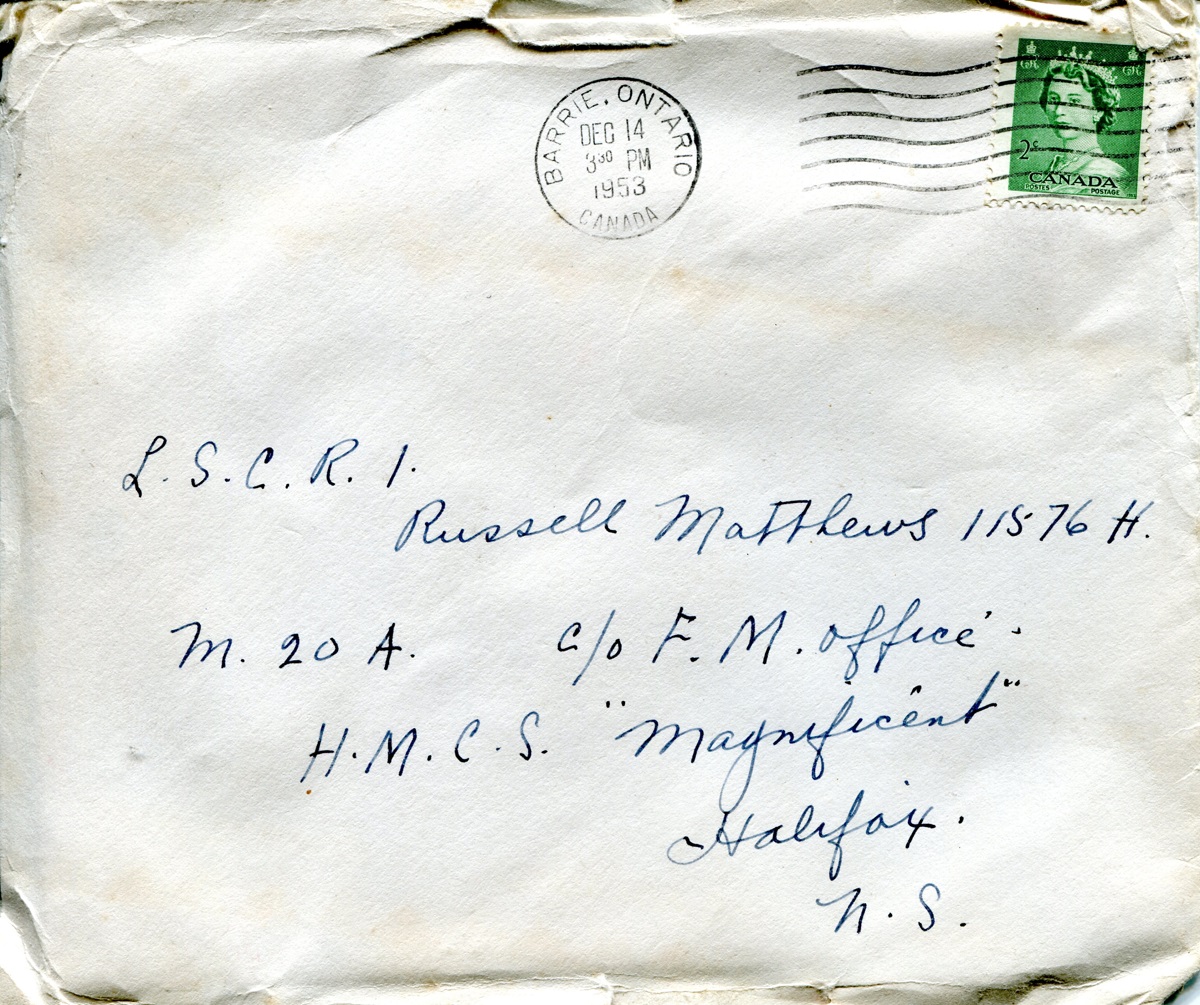 BARRIE, ONTARIO
DEC 14
3 30 PM
1953
CANADA
2c
CANADA
POSTES POSTAGE
L. S. C. R. 1.
Russell Matthews 11576 H.
M. 20 A. c/o F. M. office.
H. M. C. S. "Magnificent"
Halifax.
N. S.